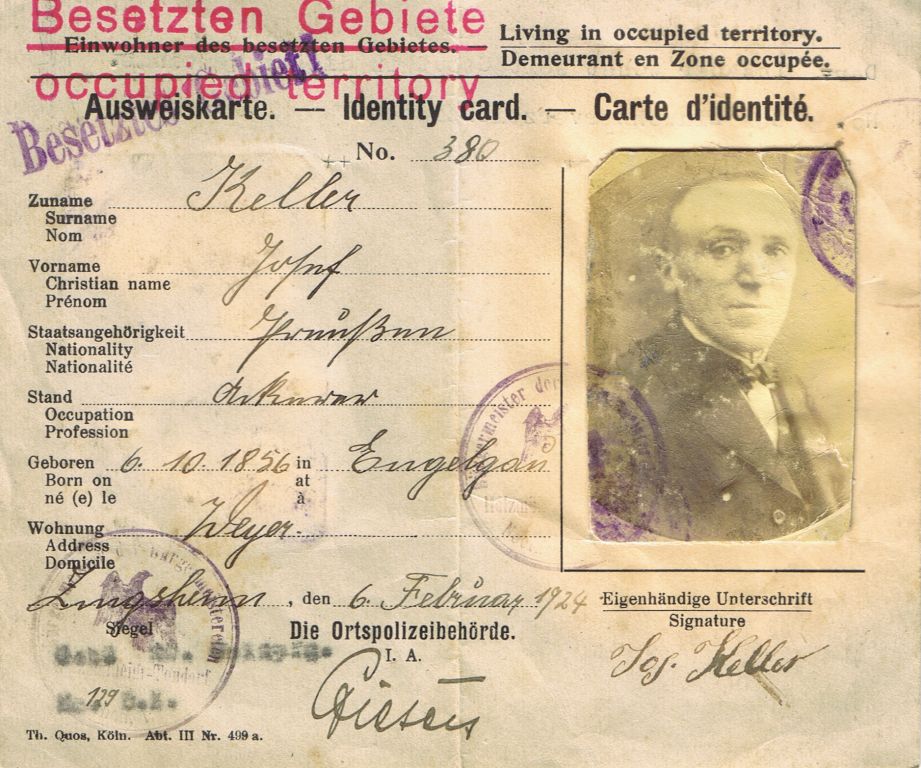 Besetzten Gebiete
Einwohner des besetzten Gebietes. —
Living in occupied territory.
Demeurant en Zone occupée.
occupied territory
Besetztes Gebiet
Ausweiskarte. — Identity card. — Carte d'identité.
No. 380
Zuname Keller
Surname
Nom
Vorname Josef
Christian name
Prénom
Staatsangehörigkeit Preußen
Nationality
Nationalité
Stand Ackerer
Occupation
Profession
Geboren 6. 10. 1856 in Engelgau
Born on at
né (e) le à
Wohnung Weyer
Address
Domicile
Zingsheim, den 6. Februar 1924
Siegel
Die Ortspolizeibehörde.
I. A.
Eigenhändige Unterschrift
Signature
Jos. Keller
129
Th. Quos, Köln. Abt. III Nr. 499 a.